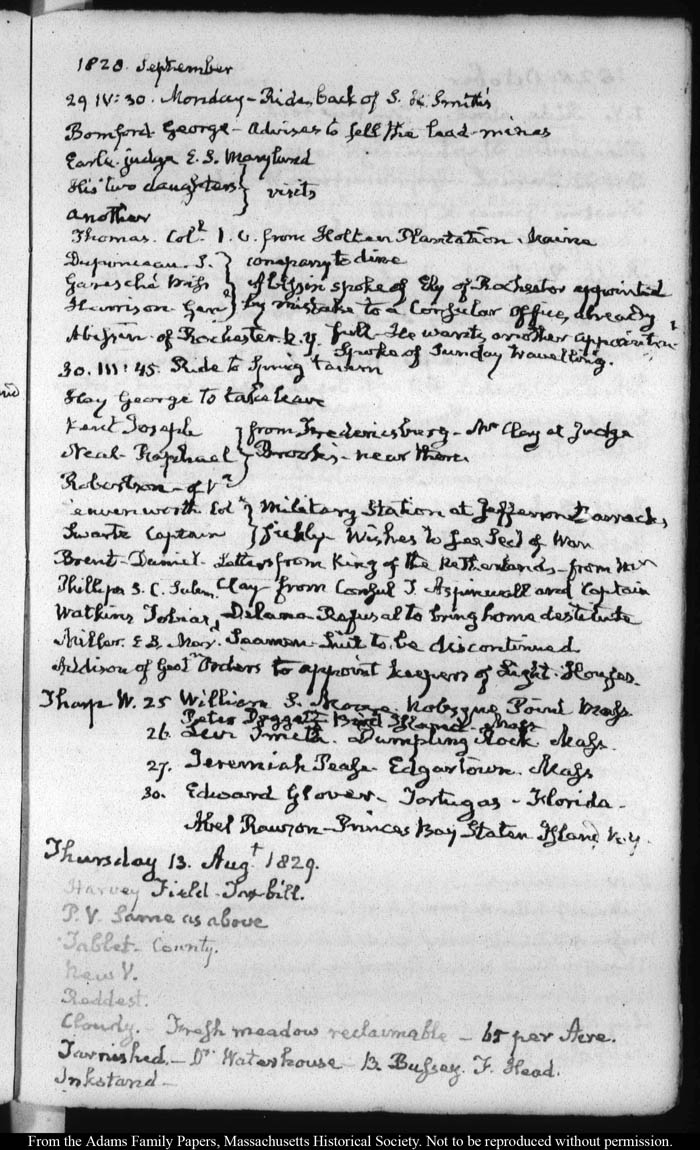 1828. September
29 IV:30. Monday - Ride, back of S. H. Smith's
Bomford. George - Advises to sell the lead-mines
Earle. judge E. S. Maryland
His two daughters } visits
another
Thomas. Col.l I. C. from Holten Plantation. Maine
Duponceau. S. } company to dine
Garesché Miss } Abissin spoke of Ely of Rochester appointed
Harrison. Gen.l } by mistake to a Consular Office, already
Abissin. of Rochester. N.Y. full. He wants another appointmt
Spoke of Sunday travelling.
30. III:45. Ride to Spring tavern
Hay George to take leave
Kent Joseph } from Fredericsburg - Mr Clay at Judge
Neal - Raphael } Brooke's - near there.
Robertson - of Va
Leavenworth Col.l } Military Station at Jefferson Barracks,
Swartz Captain } sickly. Wishes to see Secy of War
Brent - Daniel. Letters from King of the Netherlands - from Mr
Phillips S. C. Salem. Clay - from Consul T. Aspinwall and Captain
Watkins Tobias, Delano - Refusal to bring home destitute
Miller. E. S. Mary.d Seamen - Suit to be discontinued
Addison of Geo.tn Orders to appoint keepers of Light-Houses.
Tharp W. 25 William S. Moore. Nobsque Point Mass
Peter Daggett Bird Island - Mass
26. Levi Smith. Dumpling Rock Mass.
27. Jeremiah Pease - Edgartown. Mass
30. Edward Glover - Tortugas - Florida -
Abel Rawson - Princes Bay Staten Island N.Y.
Thursday 13. Augt 1829.
Harvey Field. bill.
P. V. Same as above
Tablet - County.
News V.
Reddest.
Cloudy. - Fresh meadow reclaimable - 65 per Acre.
Tarnished. - Dr Waterhouse - B. Bussey. F. Head.
Inkstand -
From the Adams Family Papers, Massachusetts Historical Society. Not to be reproduced without permission.